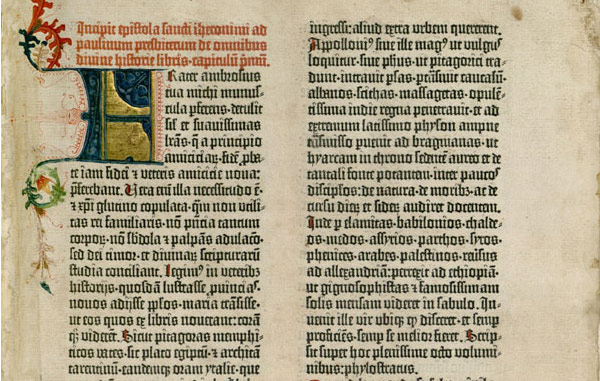 Incipit epistola sancti iheronimi ad
paulinum presbiterum de omnibus
divine historie libris. capitulū pmū.
Frater ambrosius
tua michi munus-
cula pferens. detulit
sil̄ et suavissimas
lrās. q̄ a principio
amiciciaꝝ. fidē pba-
te iam fidei et veteris amicicie nova:
pferebant. Vera em̄ illa necessitudo ē.
et xp̄i glutino copulata. qm̄ non utili-
tas rei familiaris. nō pn̄tia tantum
corpoꝝ. nō sbdola et palpans adulacō.
sed dei timor. et divinaꝝ scripturarū
studia conciliant. Legimꝰ in veteribꝫ
historijs. quosdā lustrasse puīcias.
novos adijsse pplos. maria trāsisse.
ut eos quos ex libris noverant: corā
qꝫ viderēt. Sicut pitagoras memphi-
ticos vates. sic plato egiptū. et architā
tarentinū. eandemqꝫ oram ytalie. que
ingressi: aliud extra urbem quererent.
Appollonius sive ille magꝰ ut vulgꝰ
loquitur. sive phūs. ut pitagorici tra-
dunt. intravit psas. ptrāsivit caucasū.
albanos. scithas. massagetas. opulē-
tissima indie regna penetravit. et ad
extremum latissimo physon amne
trāsmisso pvenit ad bragmanas. ut
hyarcam in throno sedentē aureo et de
tantali fonte potantem. inter paucos
discīplos. de natura. de moribꝫ. ac de
cursu dieꝝ et sideꝝ audiret docentem.
Inde p elamitas. babilonios. chalde-
os. medos. assyrios. parthos. syros.
phenices. arabes. palestinos. reversus
ad allexandriā: perrexit ad ethiopiā.
ut gignosophistas et famosissimam
solis mensam videret in sabulo. In-
venit ille vir ubiqꝫ qd disceret. et semp
proficiēs. semp se melior fieret. Scrip-
sit super hoc plenissime octo volumi-
nibus: phylostratus.